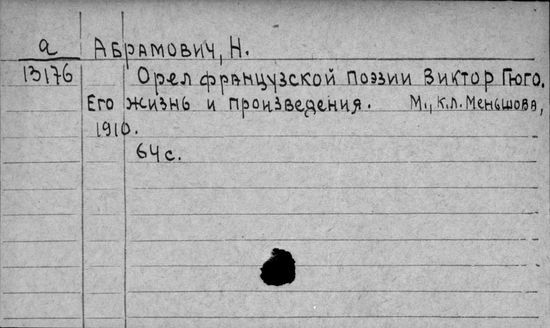 а Абрамович, Н.
13176 Орел французской поэзии Виктор Гюго.
Его жизнь и произведения. М., к.л. Меньшова,
1910.
64 с.